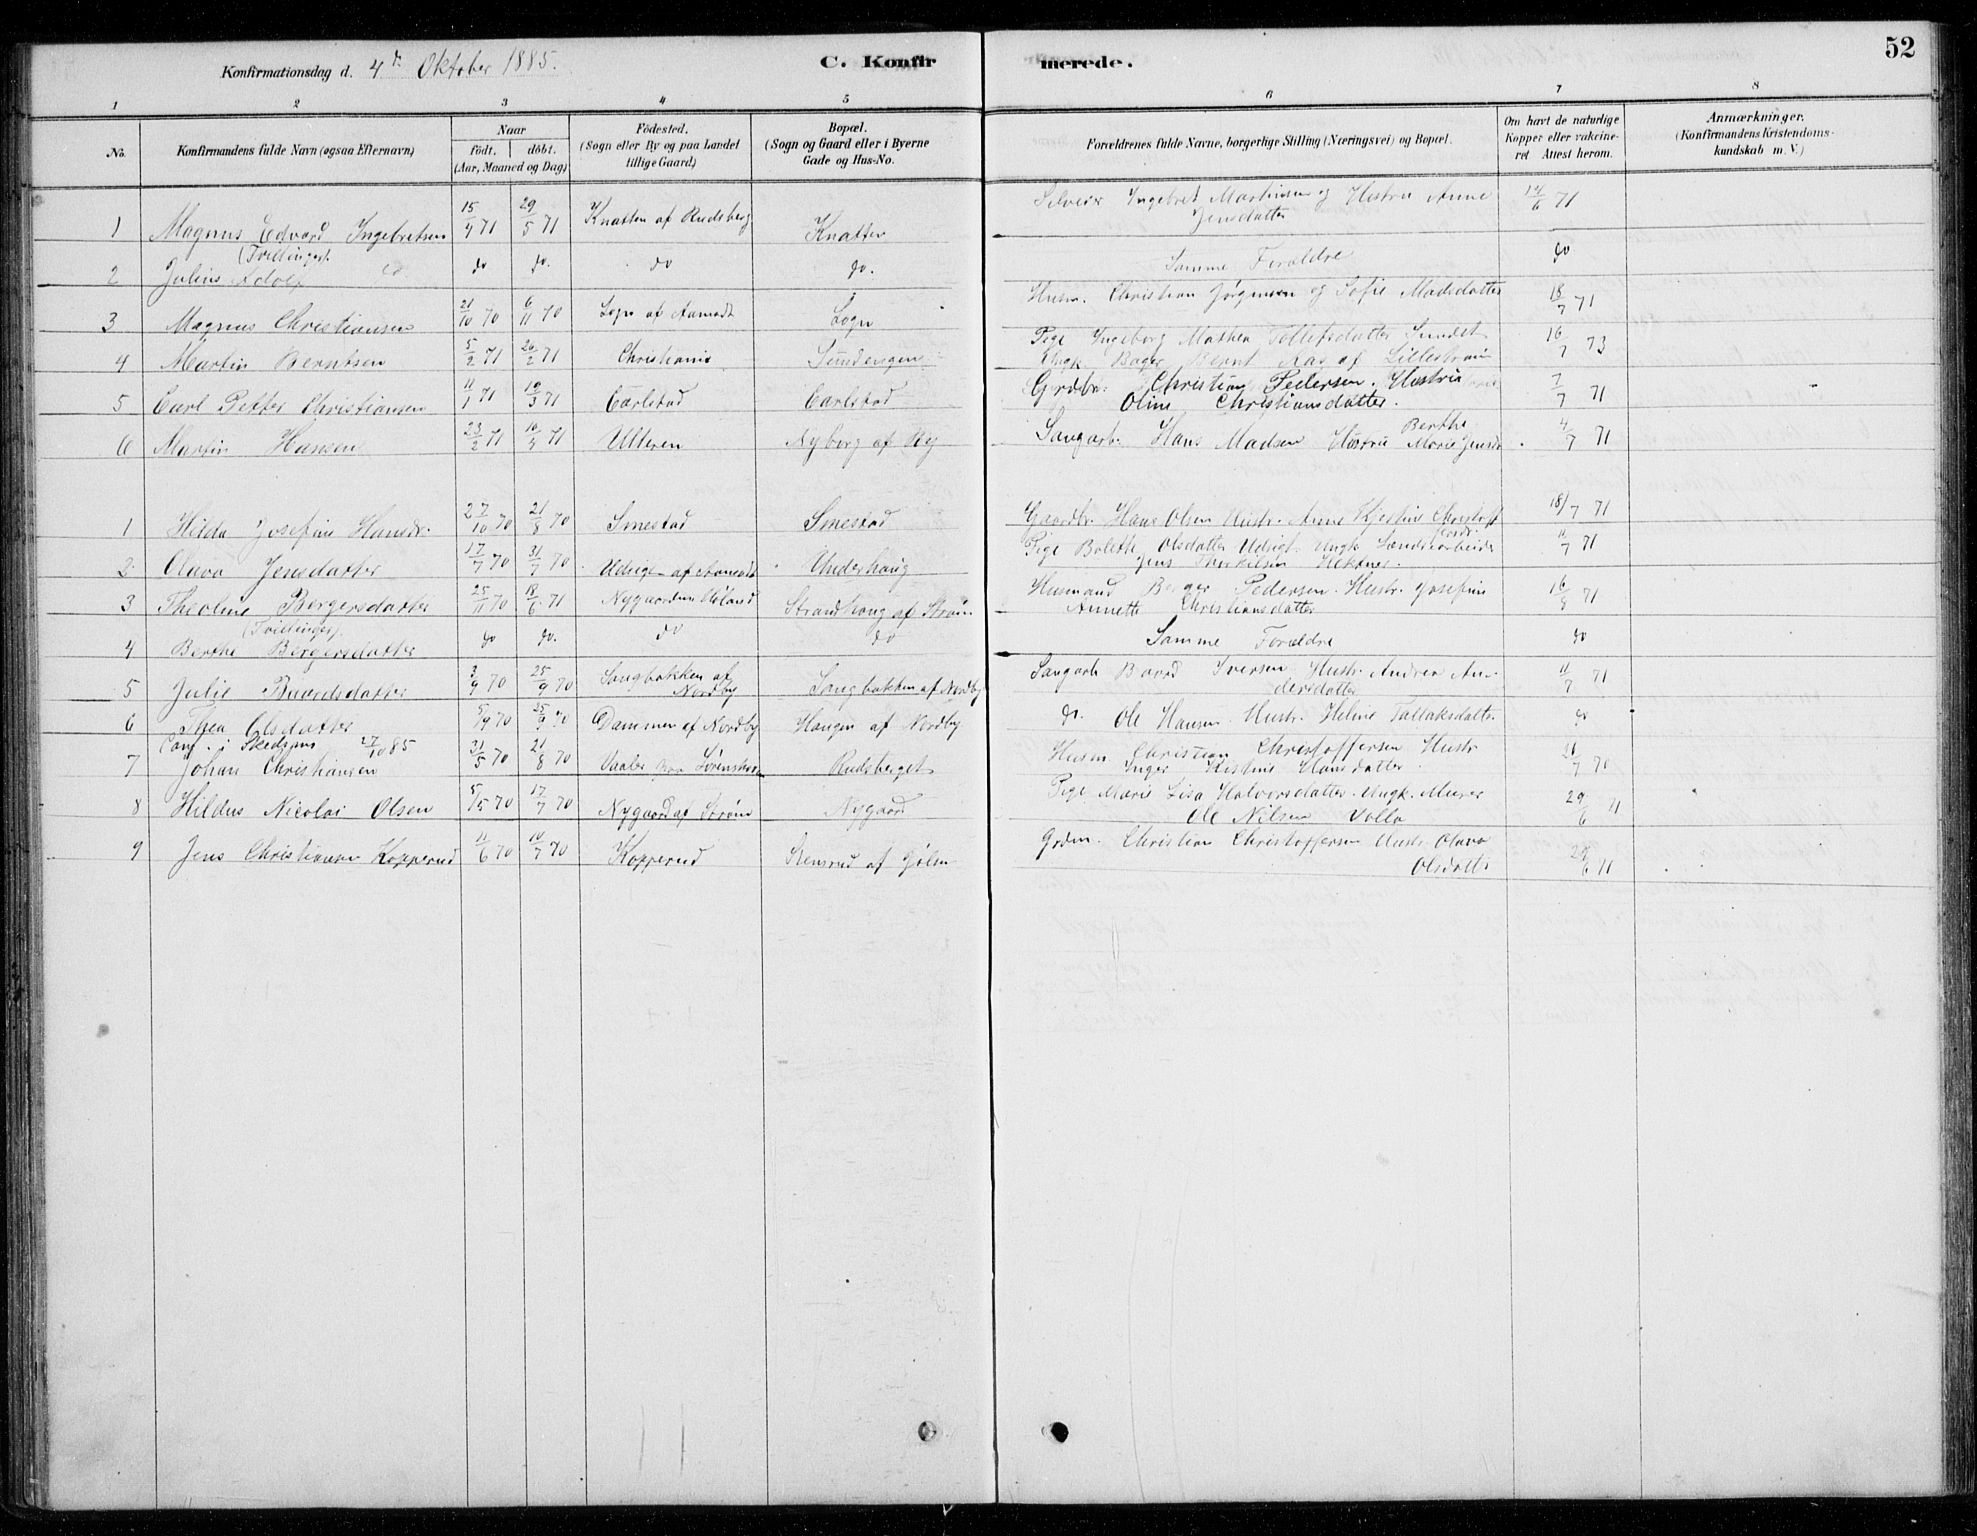 52
Konfirmationsdag d. 4de Oktober 1885. C. Konfirmerede.
1 2 3 4 5 6 7 8
No. Konfirmandens fulde Navn (ogsaa Efternavn) Naar født. døbt. (Aar, Maaned og Dag) Födested. (Sogn eller By og paa Landet tillige Gaard) Bopæl. (Sogn og Gaard eller i Byerne Gade og Hus-No. Forældrenes fulde Navne, borgerlige Stilling (Næringsvei) og Bopæl. Om havt de naturlige Kopper eller vakcineret Attest herom. Anmærkninger. (Konfirmandens Kristendomskundskab m. V.)
1 Magnus Edvard Ingebretsen 15/4 71 29/5 71 Knatten af Rudsberg Knatten Ingebret Martinsen og Hustru Anne Jensdatter 14/6 71
(Tvillinger)
2 Julius Adolf do do do. do do. Samme Forældre do
3 Magnus Christiansen 21/10 70 6/11 70 Logn af Aamodt Logn Husm. Christian Jørgensen og Sofie Madsdatter 18/7 71
4 Martin Berntsen 5/2 71 26/2 71 Christiania Sundengen Pige Ingeborg Mathea Tollefsdatter Sundet
Ungk Bager Bernt Aas af Lillestrøm 16/7 73
5 Carl Petter Christiansen 11/1 71 19/3 71 Carlstad Carlstad Grdbr. Christian Pedersen. Hustru
Oline Christiansdatter. 7/7 71
6 Martin Hansen 23/2 71 10/4 71 Ulteren Nyborg af Ry Saugarb. Hans Madsen Hustru Berthe Marie Jensd 4/7 71
1 Hilda Josefine Hansdr. 27/10 70 21/8 70 Smestad Smestad Gaardbr. Hans Olsen Hustr. Anne Kjestine Christoffersdr 18/7 71
2 Olava Jensdatter 17/7 70 31/7 70 Udsigen af Aamodt Underhaug Pige Bolette Olsdatter Udsigt. Ungk Landarbeider
Jens Thorkilsen 11/7 71
3 Theoline Bergersdatter 25/11 70 18/6 71 Nygaarden Høland Strandhaug af Strøm Husmand Berger Pedersen. Hustr. Josefine
Annette Christiansdatter 16/8 71
(Tvillinger).
4 Berthe Bergersdatter do do. do do Samme Forældre do
5 Julie Baardsdatter 3/9 70 25/9 70 Saugbakken af Nordby Saugbakken af Nordby Saugarb Baard Iversen Hustr. Andrea Andersdatter 11/7 71
6 Thea Olsdatter 5/9 70 25/9 70 Dammen af Nordby Haugen af Nordby do. Ole Hansen. Hustr. Heline Tallaksdattr. do
Conf. i Skedsmo 27/10 85
7 Johan Christiansen 31/5 70 21/8 70 Vaaler Rudsberget Husm Christian Christoffersen Hustr.
Inger Kistine Hansdatter. 21/7 70
8 Hildus Nicolai Olsen 5/5 70 17/7 70 Nygaard af Strøm Nygaard Pige Marie Lisa Halvorsdatter. Ungk. Murer
Ole Nilsen Volla 29/6 71
9 Jens Christiansen Kopperud 11/6 70 10/7 70 Kopperud Stensrud af Gjølsn Grdm. Christian Christoffersen Hustr. Olava
Olsdatter 29/6 71